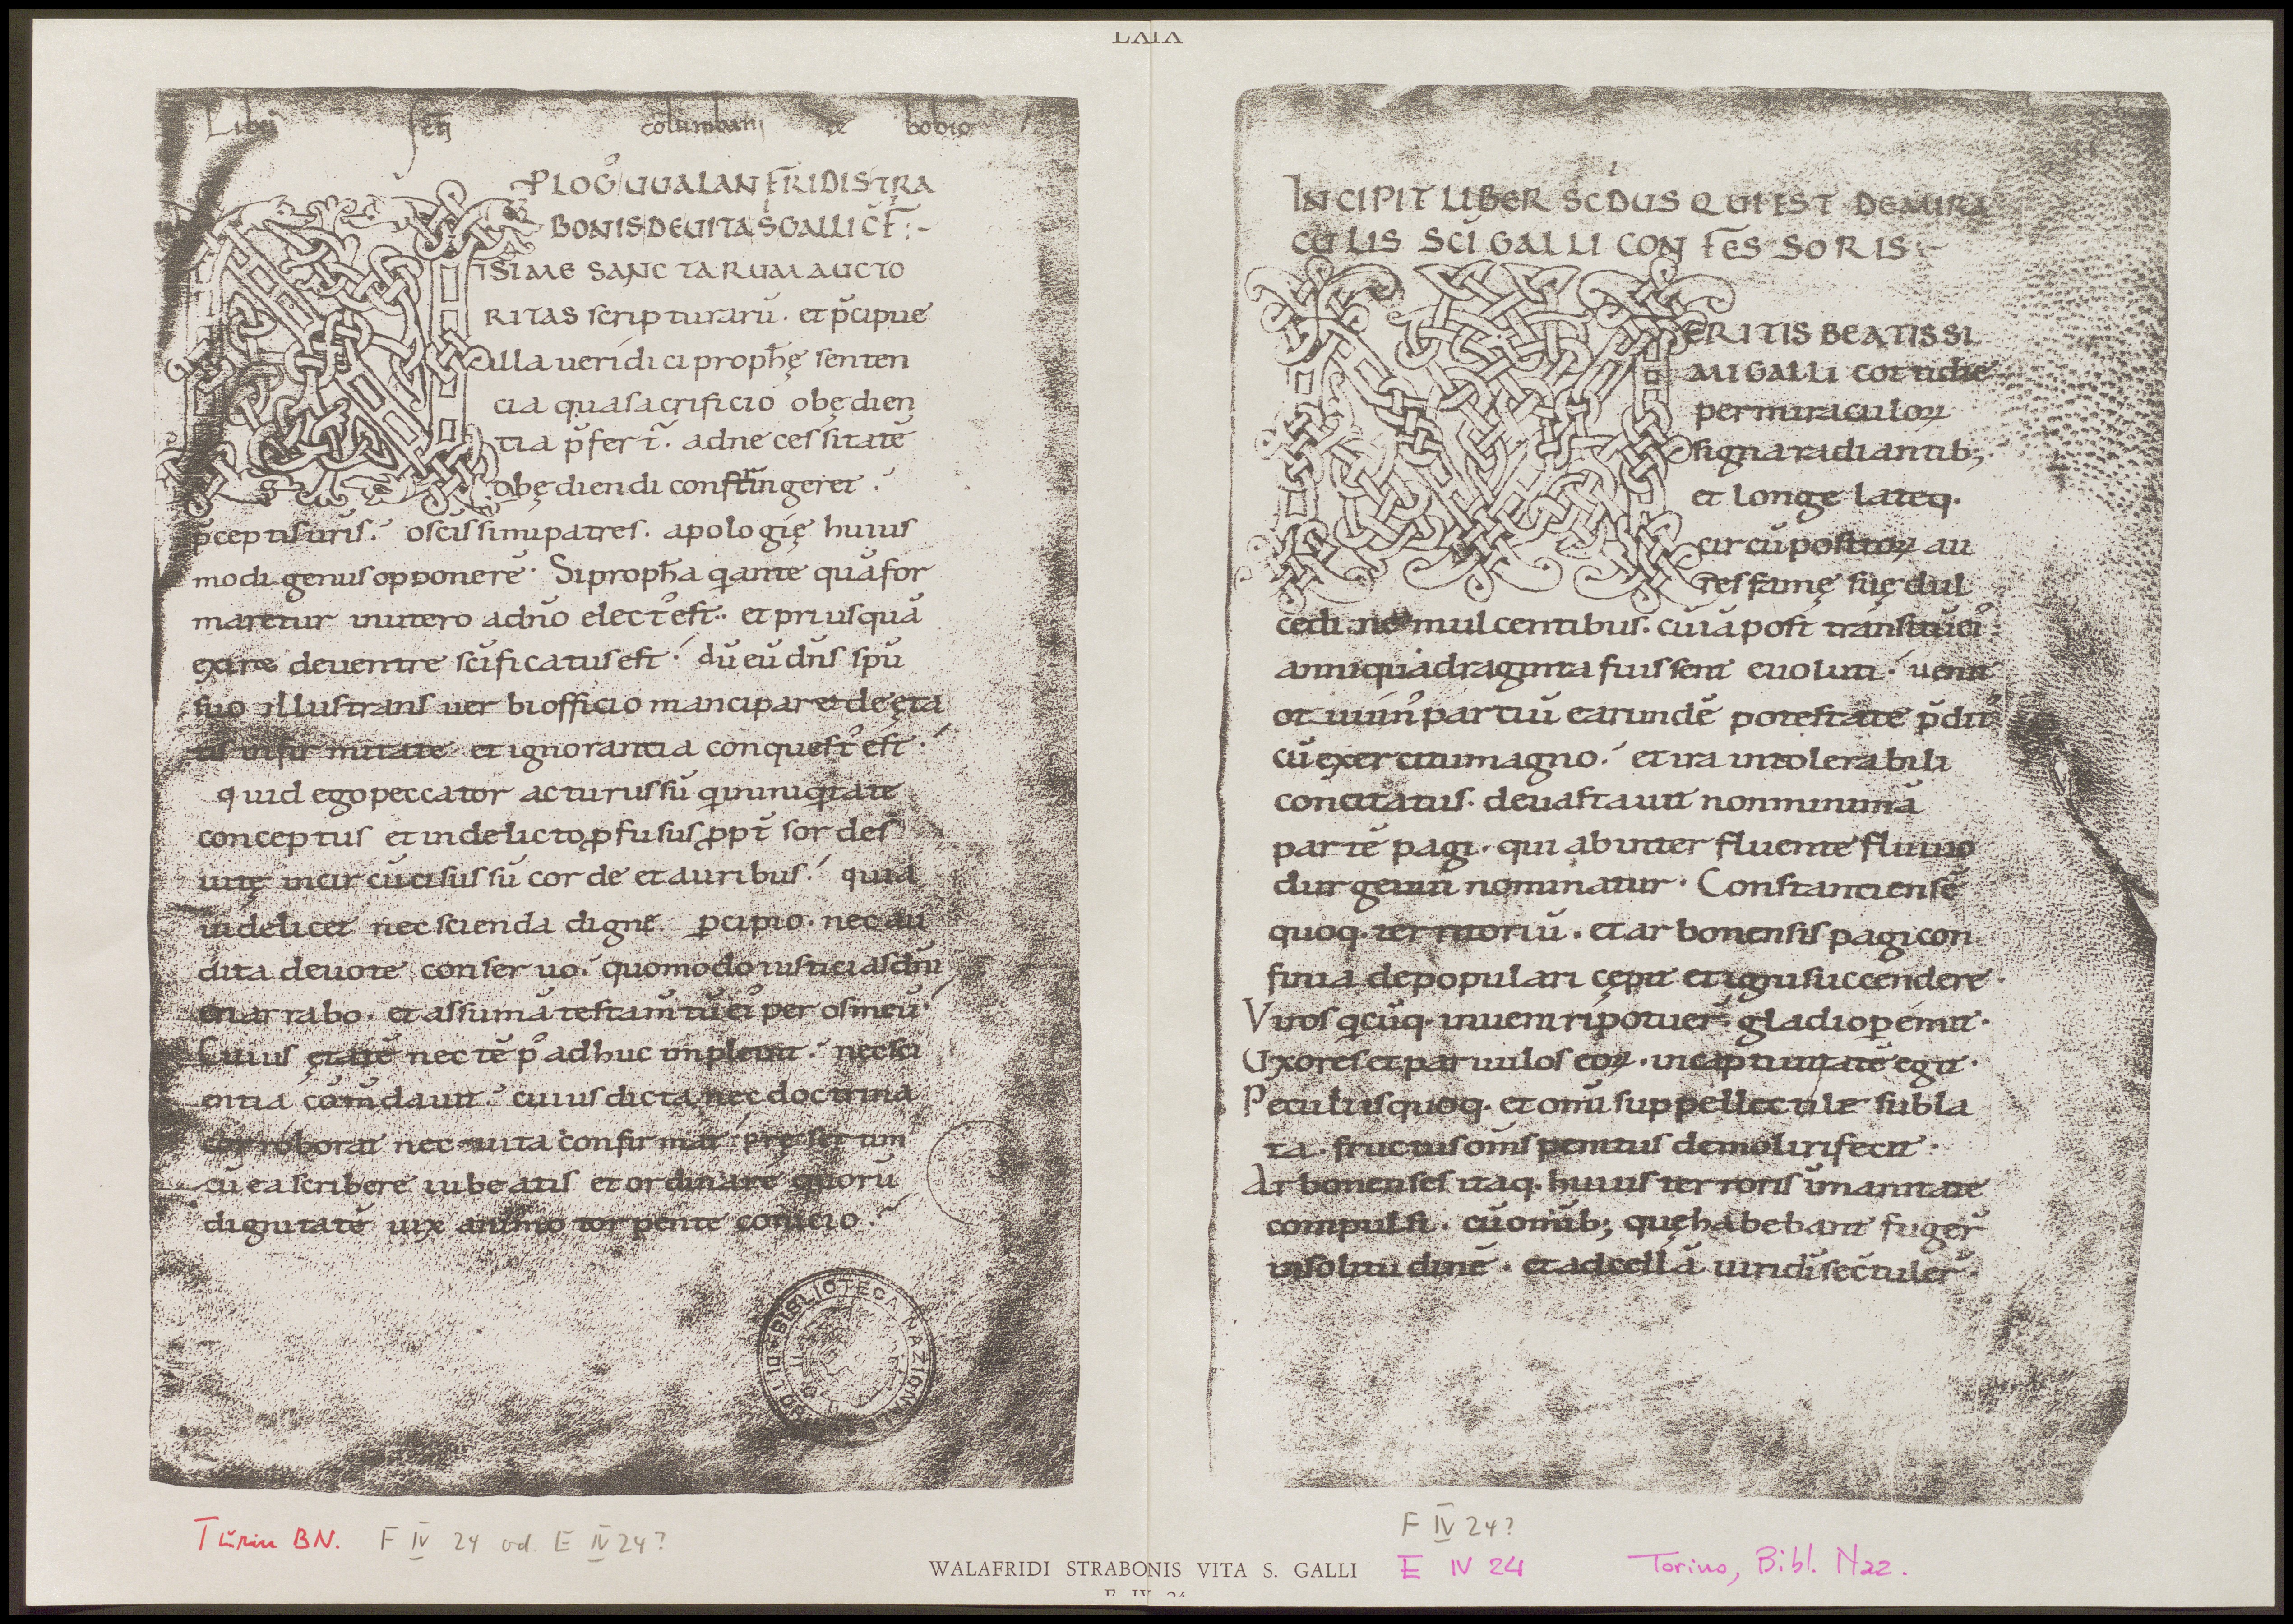 LXIX
Liber scti columbani de bobio
PLOG̉ UUALANFRIDI STRA
BONIS DE UITA S GALLI CF̄ :-
ISIME SANCTARUM AUCTO
RITAS scripturarū · et p̄cipue
illa ueridici prophę senten
cia qua sacrificio obędien
tia p̄fert̄ · ad necessitatē
obędiendi constringeret ·
p̄ceptis uris · o scissimi patres · apologię huius
modi genus opponerē · Si propha qante quā for
maretur in utero a dno elect' est · et priusquā
exire de uentre scificatus est · dū eū dns spu
suo illustrans uerbi officio manciparet de ęta
tis infirmitate et ignorantia conquest' est ·
quid ego peccator acturus sū q in iniqtate
conceptus et in delicto pfusus ppt̄ sordes
uitę incircūcisus sū corde et auribus · quia
uidelicet nec scienda digne pcipio · nec au
dita deuote conseruo · quomodo iusticias dni
enarrabo · et assumā testamtū ei' per os meū ·
Cuius ętatē nec tēp' adhuc impleuit · nec sci
entia cōmdauit · cuius dicta nec doctrina
corroborat nec uita confirmat pręsertim
cū ea scribere iubeatis et ordinare quorū
dignitatē uix animo torpente conicio ·
BIBLIOTECA NAZIONALE DI TORINO
INCIPIT LIBER SCDUS QUI EST DE MIRA
CULIS SCI GALLI CONFESSORIS :-
ERITIS BEATISSI
MI GALLI cottidie
per miraculoꝝ
signa radiantib;
et longe lateq·
circūpositoꝝ au
res famę suę dul
cedine mulcentibus · cū iā post transitū ei'
anni quadraginta fuissent euoluti · uenit
otuuin' partiū earundē potestate p̄dit'
cū exercitu magno · et ira intolerabili
concitatus · deuastauit non minimā
partē pagi · qui ab interfluente fluuio
durgeuui nominatur · Constantiensē
quoq· territoriū · et arbonensis pagi con
finia depopulari cępit et igni succendere ·
Viros qcūq· inueniri potuer̄ gladio pemit ·
Uxores et paruulos eoꝝ · in captiuitatē egit ·
Peculiis quoq· et omi suppellectile subla
ta · fructus oms penitus demoliri fecit ·
Arbonenses itaq· huius terroris imanitate
compulsi · cū omib; quę habebant fuger̄
in solitudinē · et ad cellā uiri di se cōtuler̄ ·
Turin BN. F IV 24 od. E IV 24?
F IV 24?
E IV 24 Torino, Bibl. Naz.
WALAFRIDI STRABONIS VITA S. GALLI
E IV 24